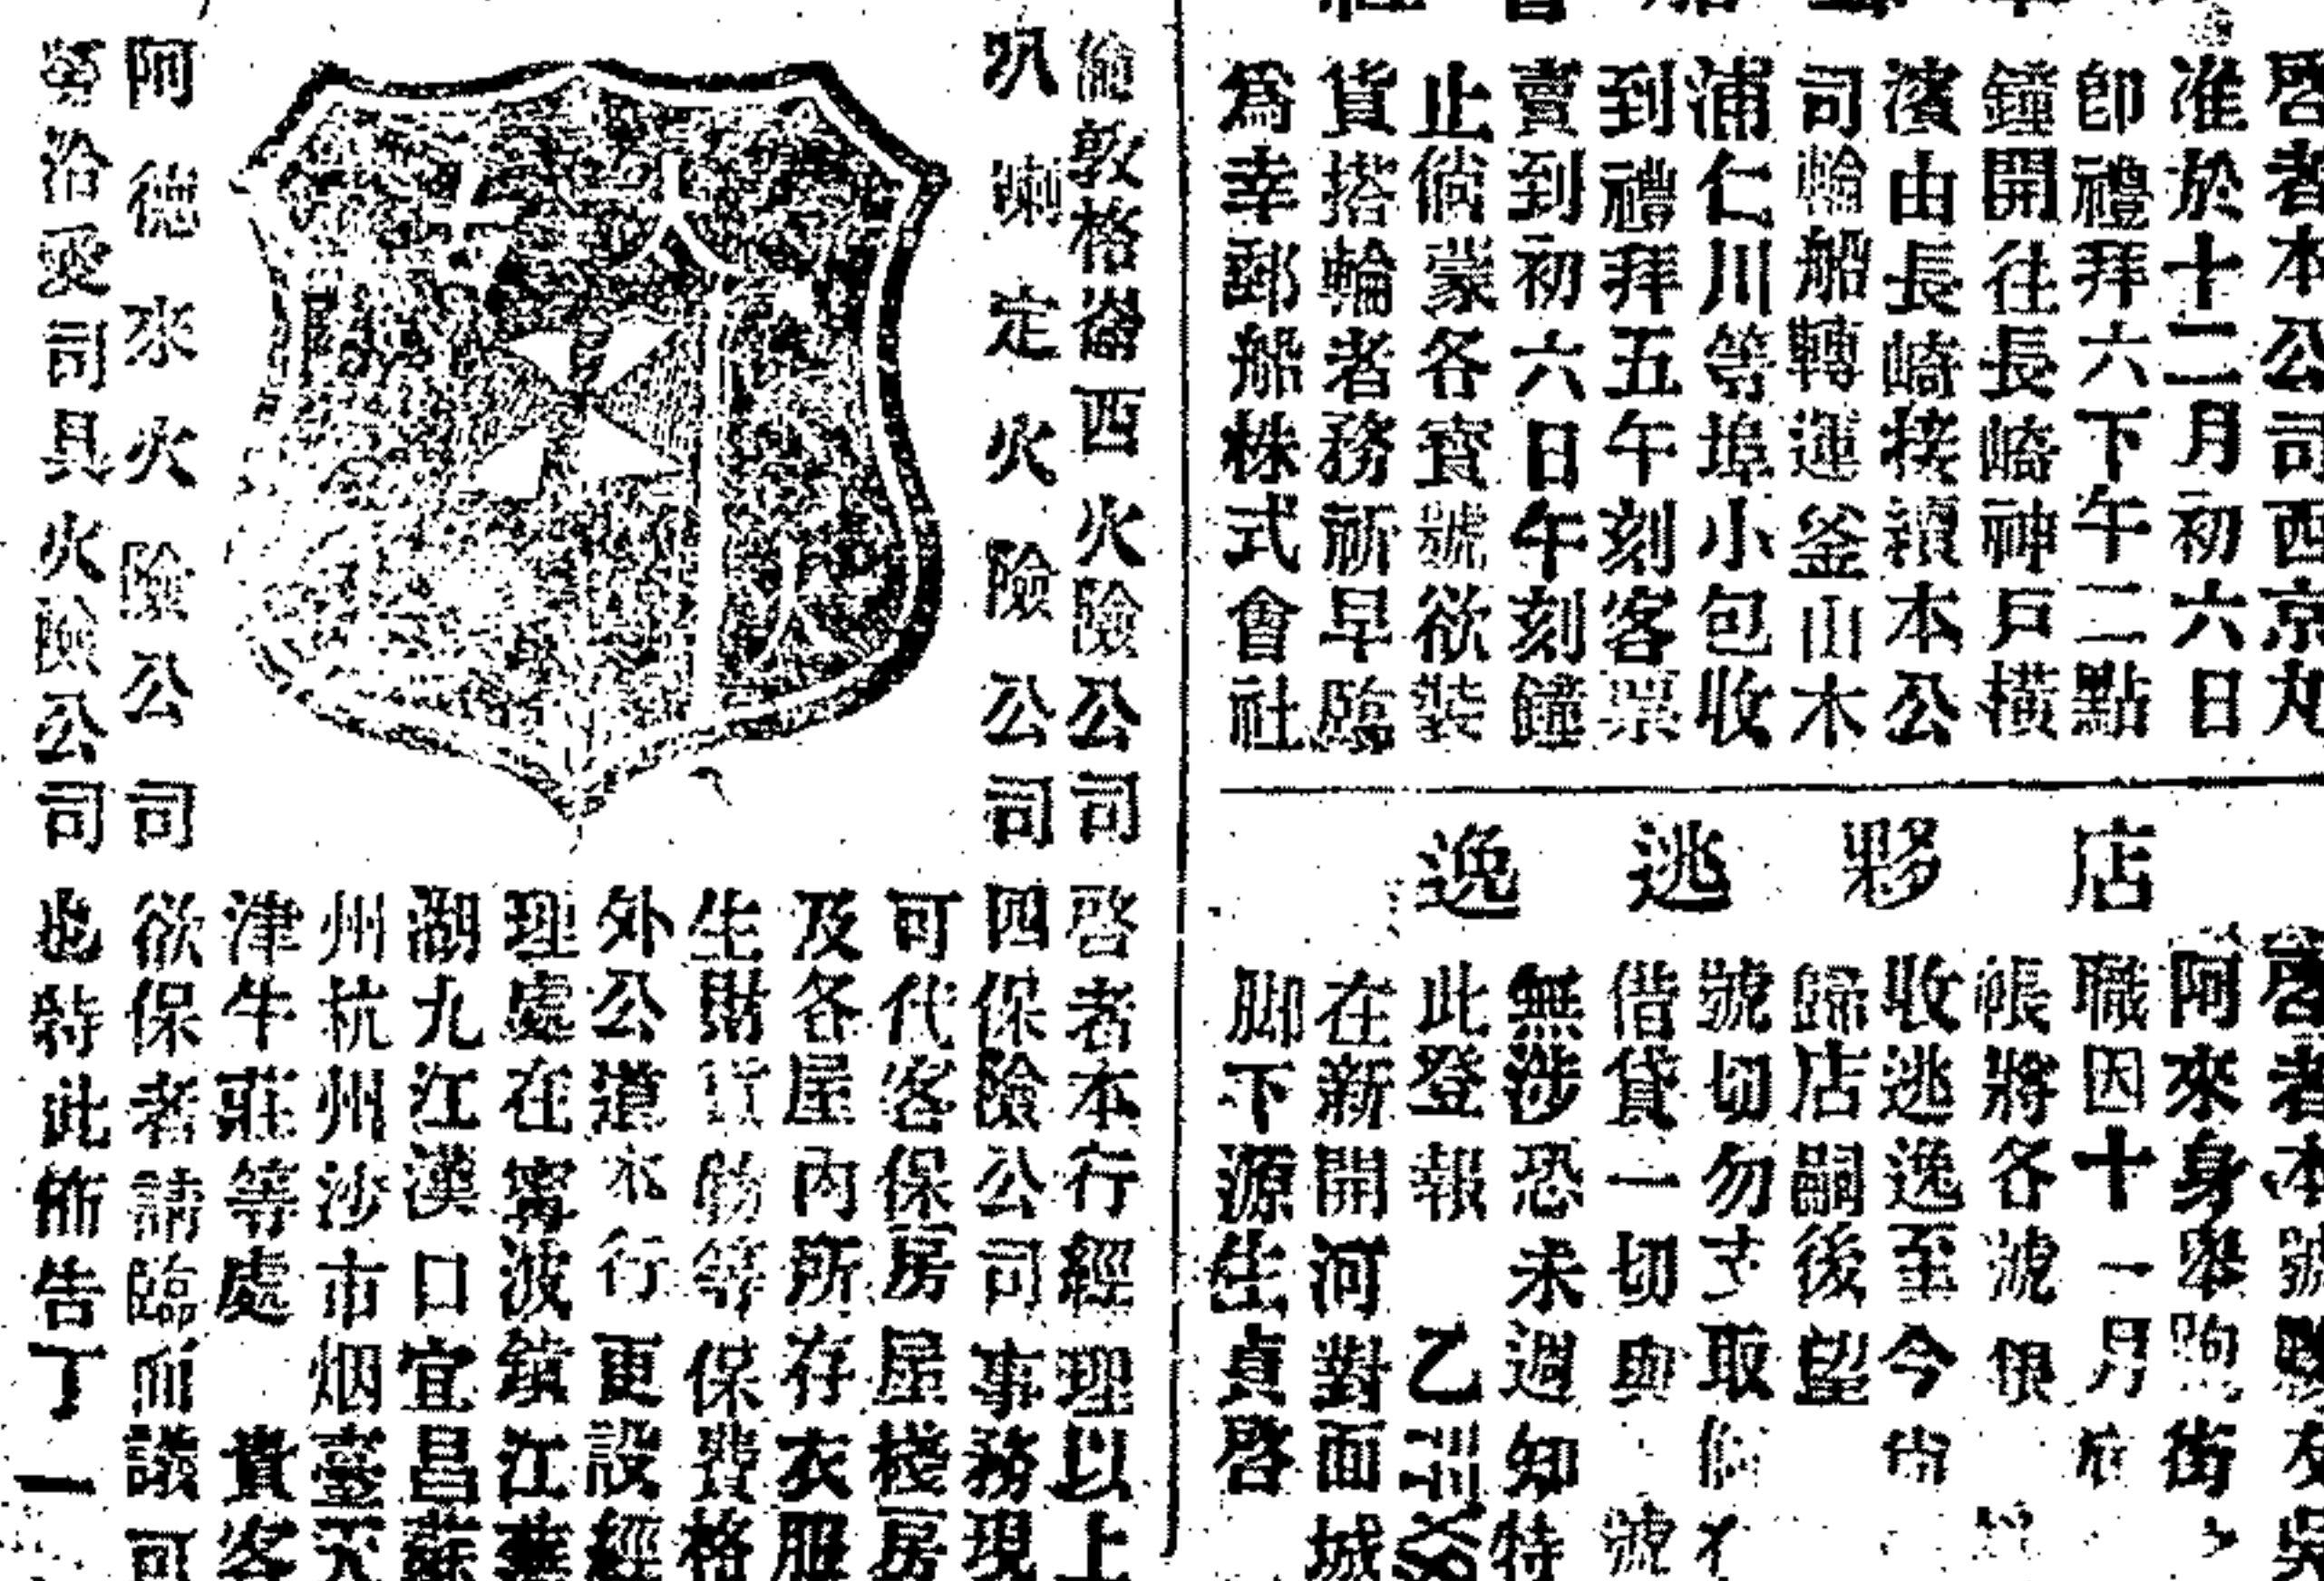 啓者本公司西京丸
准於十二月初六日
即禮拜六下午二點
鐘開往長崎神戶橫
濱由長崎接續本公
司輪船轉運釜山木
浦仁川等埠小包收
到禮拜五午刻客票
賣到初六日午刻鐘
止倘蒙各寶號欲裝
貨搭輪者務祈早臨
爲幸郵船株式會社
店夥逃逸
啓者本號
阿來身舉 街
職因十一月
帳將各號 銀
收逃逸至今
歸店嗣後望
號切勿支取
借貸一切與 號
無涉恐未週知特
此登報 乙
在新開河對面城
脚下源生貞啓
倫敦格崙西火險公司
叭喇定火險公司
阿德來火險公司
司具火險公司
啓者本行經理以上
四保險公司事務現
可代客保房屋棧房
及各屋內所存衣服
生財貨物等保費格
外公道本行更設經
理處在寗波鎮江蕪
湖九江漢口宜昌蘇
州杭州沙市烟臺天
津牛莊等處 貴客
欲保者請臨面議可
也特此佈告丁一